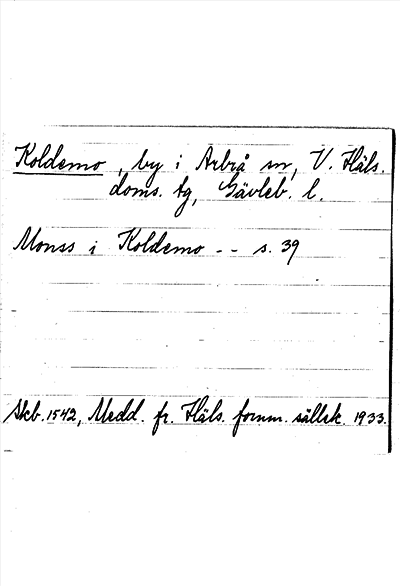 Koldemo, by i Arbrå sn, V. Häls.
doms. tg, Gävleb. l.
Monss i Koldemo - - s. 39
Skb. 1542, Medd. fr. Häls. fornm. sällsk. 1933.